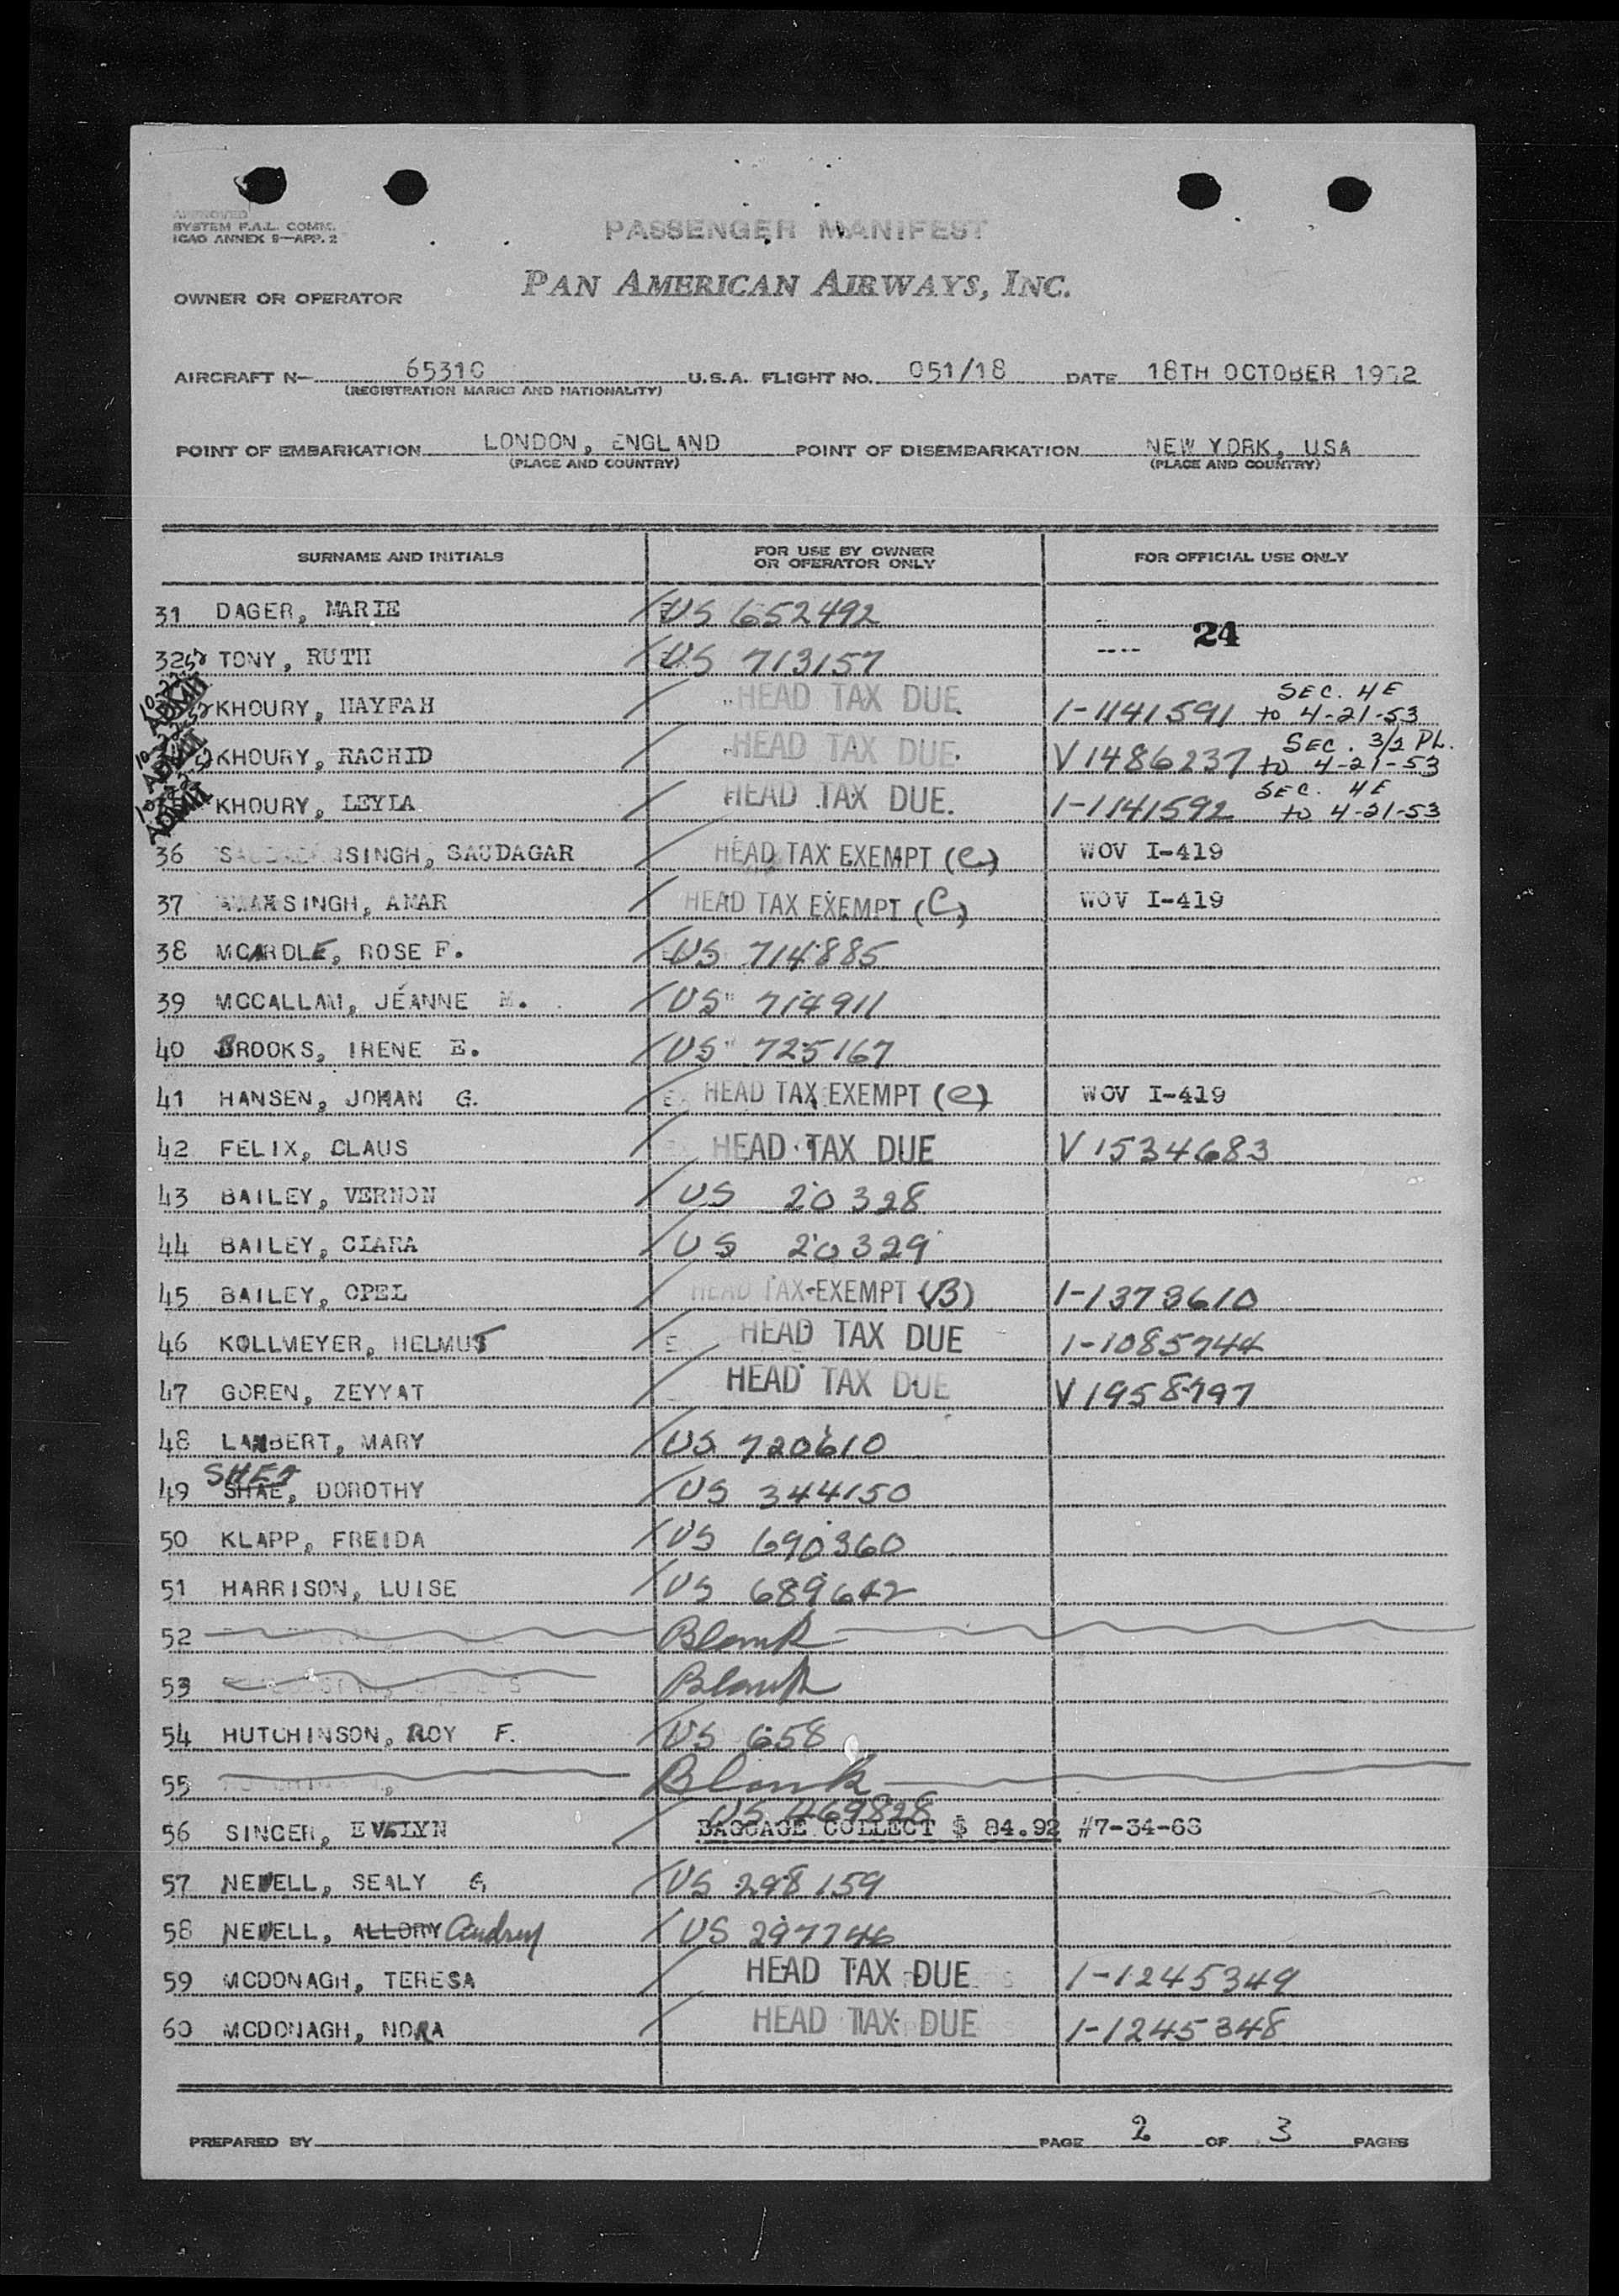 APPROVED
SYSTEM F.A.L. COMM.
ICAO ANNEX 9—APP. 2
PASSENGER MANIFEST
OWNER OR OPERATOR PAN AMERICAN AIRWAYS, INC.
AIRCRAFT N— 65310 U.S.A. FLIGHT NO. 051/18 DATE 18TH OCTOBER 1952
(REGISTRATION MARKS AND NATIONALITY)
POINT OF EMBARKATION LONDON, ENGLAND POINT OF DISEMBARKATION NEW YORK, USA
(PLACE AND COUNTRY) (PLACE AND COUNTRY)
SURNAME AND INITIALS FOR USE BY OWNER OR OPERATOR ONLY FOR OFFICIAL USE ONLY
31 DAGER, MARIE US 652492
24
32 TONY, RUTH US 713157
ADMIT KHOURY, HAYFAH HEAD TAX DUE. 1-1141591 SEC. 4E to 4-21-53
ADMIT KHOURY, RACHID HEAD TAX DUE. V1486237 SEC. 3/2 PL. to 4-21-53
ADMIT KHOURY, LEYLA HEAD TAX DUE. 1-1141592 SEC. 4E to 4-21-53
36 SINGH, SAUDAGAR HEAD TAX EXEMPT (C) WOV I-419
37 SINGH, AMAR HEAD TAX EXEMPT (C) WOV I-419
38 MCARDLE, ROSE F. US 714885
39 MCCALLAM, JEANNE M. US 714911
40 BROOKS, IRENE E. US 725167
41 HANSEN, JOHAN G. HEAD TAX EXEMPT (C) WOV I-419
42 FELIX, CLAUS HEAD TAX DUE V1534683
43 BAILEY, VERNON US 20328
44 BAILEY, CLARA US 20329
45 BAILEY, OPEL HEAD TAX EXEMPT (B) 1-1373610
46 KOLLMEYER, HELMUT HEAD TAX DUE 1-1085744
47 GOREN, ZEYYAT HEAD TAX DUE V1958797
48 LAMBERT, MARY US 720610
SHEA
49 SHAE, DOROTHY US 344150
50 KLAPP, FREIDA US 690360
51 HARRISON, LUISE US 689642
52 Blank
53 Blank
54 HUTCHINSON, ROY F. US 658
55 Blank
US 469828
56 SINGER, EVELYN BAGGAGE COLLECT $ 84.92 #7-34-68
57 NEWELL, SEALY G, US 298159
58 NEWELL, ALLORY Audrey US 297746
59 MCDONAGH, TERESA HEAD TAX DUE 1-1245349
60 MCDONAGH, NORA HEAD TAX DUE 1-1245348
PREPARED BY PAGE 2 OF 3 PAGES